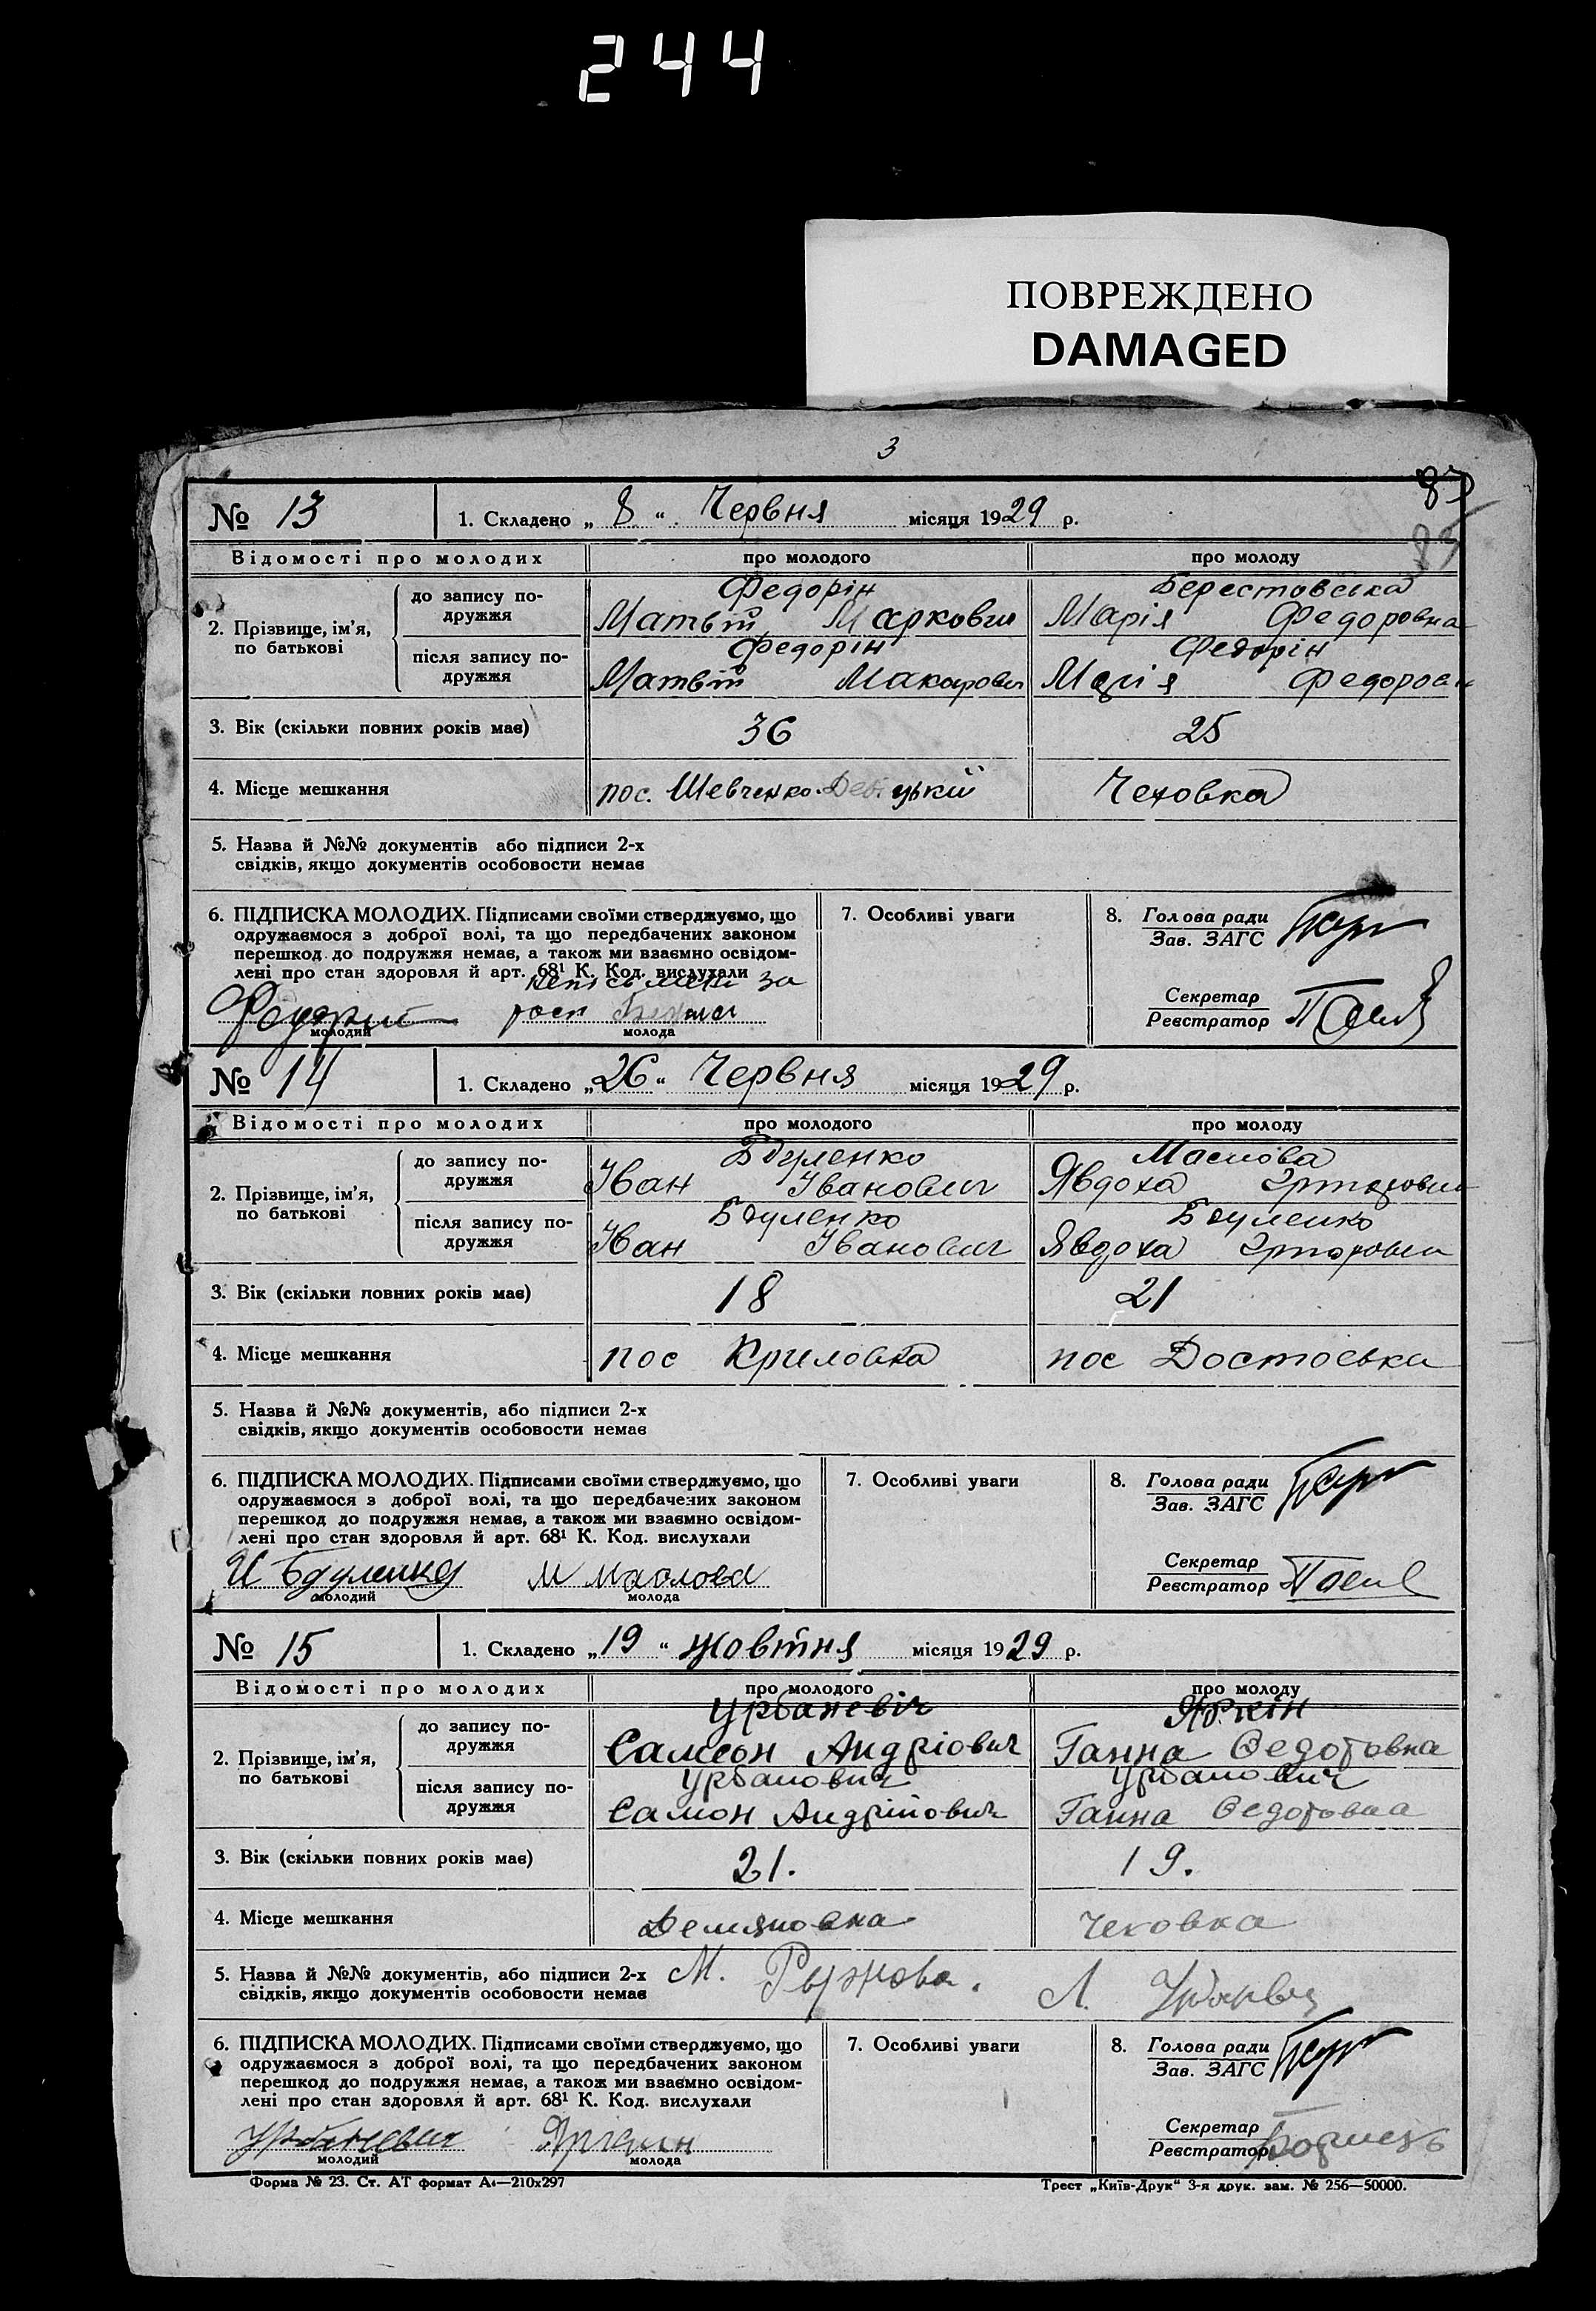 244
ПОВРЕЖДЕНО
DAMAGED
3
83
85
№ 13 1. Складено „ 8 “ Червня місяця 1929 р.
Відомості про молодих про молодого про молоду
2. Прізвище, ім’я, по батькові
до запису подружжя
Федорін Берестовська
Матвій Маркович Марія Федоровна
після запису подружжя
Федорін Федорін
Матвій Макарович Марія
3. Вік (скільки повних років має) 36 25
4. Місце мешкання пос. Шевченко Чеховка
5. Назва й №№ документів або підписи 2-х
свідків, якщо документів особовости немає
6. ПІДПИСКА МОЛОДИХ. Підписами своїми стверджуємо, що
одружаємося з доброї волі, та що передбачених законом
перешкод до подружжя немає, а також ми взаємно освідом-
лені про стан здоровля й арт. 68¹ К. Код. вислухали
7. Особливі уваги
8. Голова ради
Зав. ЗАГС
Секретар
Реєстратор
за
молодий молода
№ 14 1. Складено „26“ Червня місяця 1929 р.
Відомості про молодих про молодого про молоду
2. Прізвище, ім’я, по батькові
до запису подружжя
Бдуленко Маслова
Іван Іванович Явдоха
після запису подружжя
Бдуленко Бдуленко
Іван Іванович Явдоха
3. Вік (скільки повних років має) 18 21
4. Місце мешкання пос Криловка пос Достоєвка
5. Назва й №№ документів, або підписи 2-х
свідків, якщо документів особовости немає
6. ПІДПИСКА МОЛОДИХ. Підписами своїми стверджуємо, що
одружаємося з доброї волі, та що передбачених законом
перешкод до подружжя немає, а також ми взаємно освідом-
лені про стан здоровля й арт. 68¹ К. Код. вислухали
7. Особливі уваги
8. Голова ради
Зав. ЗАГС
Секретар
Реєстратор
И Бдуленко М Маслова
молодий молода
№ 15 1. Складено „19“ жовтня місяця 1929 р.
Відомості про молодих про молодого про молоду
2. Прізвище, ім’я, по батькові
до запису подружжя
Урбаневіч
Самсон Андріович Ганна Федотовна
після запису подружжя
Урбанович Урбанович
Самон Андрійович Ганна Федотовна
3. Вік (скільки повних років має) 21. 19.
4. Місце мешкання Демяновка Чеховка
5. Назва й №№ документів, або підписи 2-х
свідків, якщо документів особовости немає
М. Рыжова. Л.
6. ПІДПИСКА МОЛОДИХ. Підписами своїми стверджуємо, що
одружаємося з доброї волі, та що передбачених законом
перешкод до подружжя немає, а також ми взаємно освідом-
лені про стан здоровля й арт. 68¹ К. Код. вислухали
7. Особливі уваги
8. Голова ради
Зав. ЗАГС
Секретар
Реєстратор
Урбаневич
молодий молода
Форма № 23. Ст. АТ формат А₄—210x297 Трест „Київ-Друк“ 3-я друк. зам. № 256—50000.